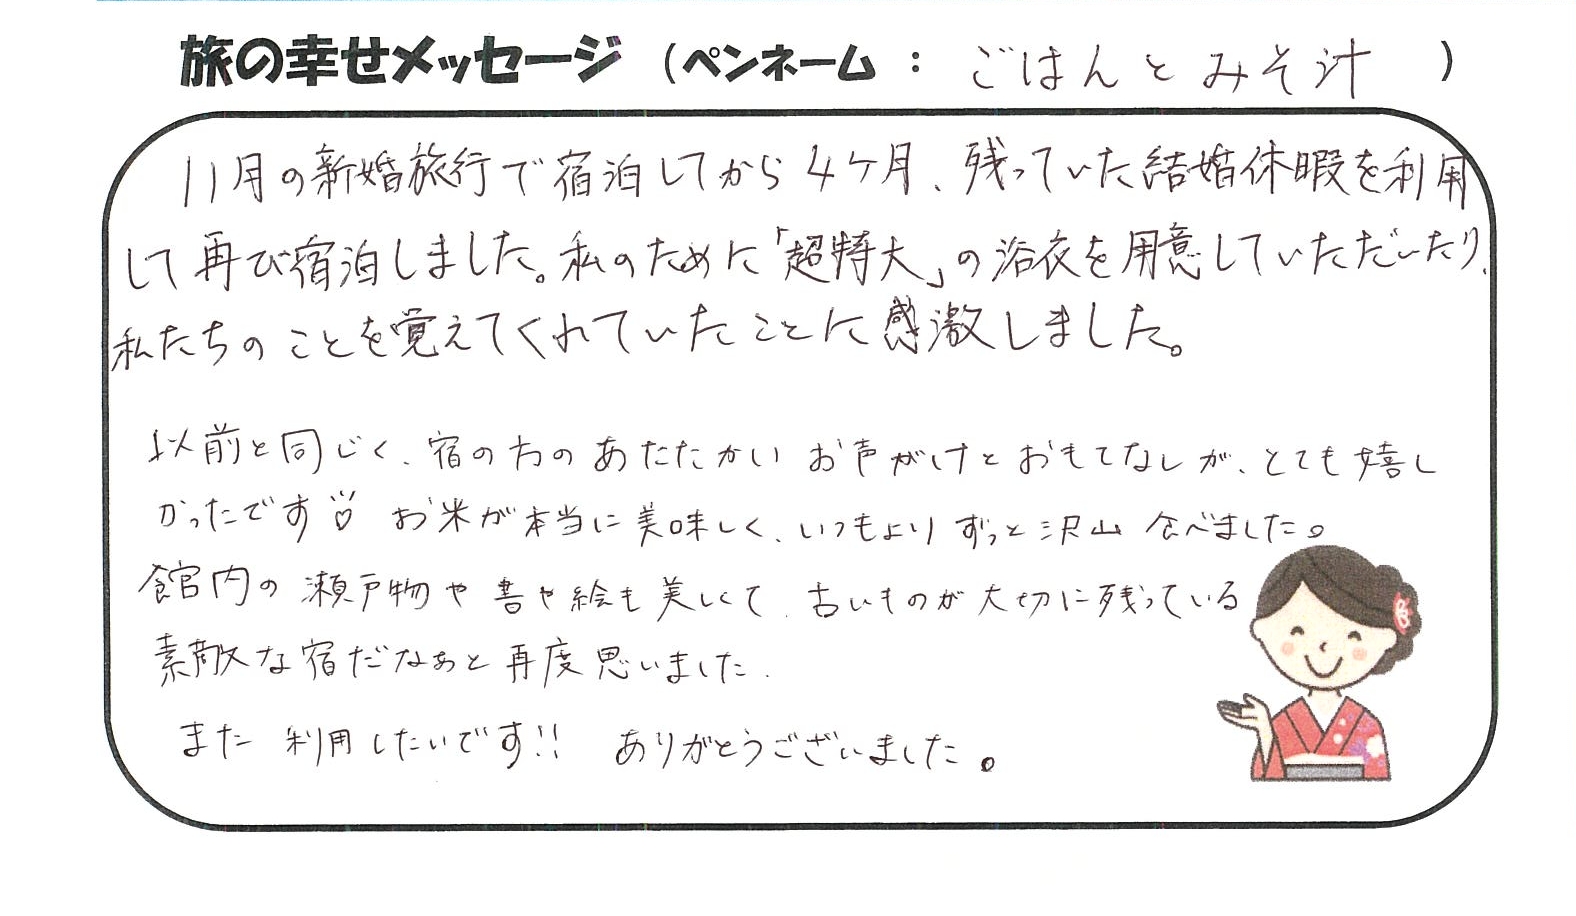 旅の幸せメッセージ （ペンネーム : ごはんとみそ汁 ）
11月の新婚旅行で宿泊してから4ヶ月、残っていた結婚休暇を利用
して再び宿泊しました。私のために「超特大」の浴衣を用意していただいたり、
私たちのことを覚えてくれていたことに感激しました。
以前と同じく、宿の方のあたたかいお声がけとおもてなしが、とても嬉し
かったです♡ お米が本当に美味しく、いつもよりずっと沢山食べました。
館内の瀬戸物や書や絵も美しくて、古いものが大切に残っている
素敵な宿だなぁと再度思いました.
また利用したいです!! ありがとうございました。